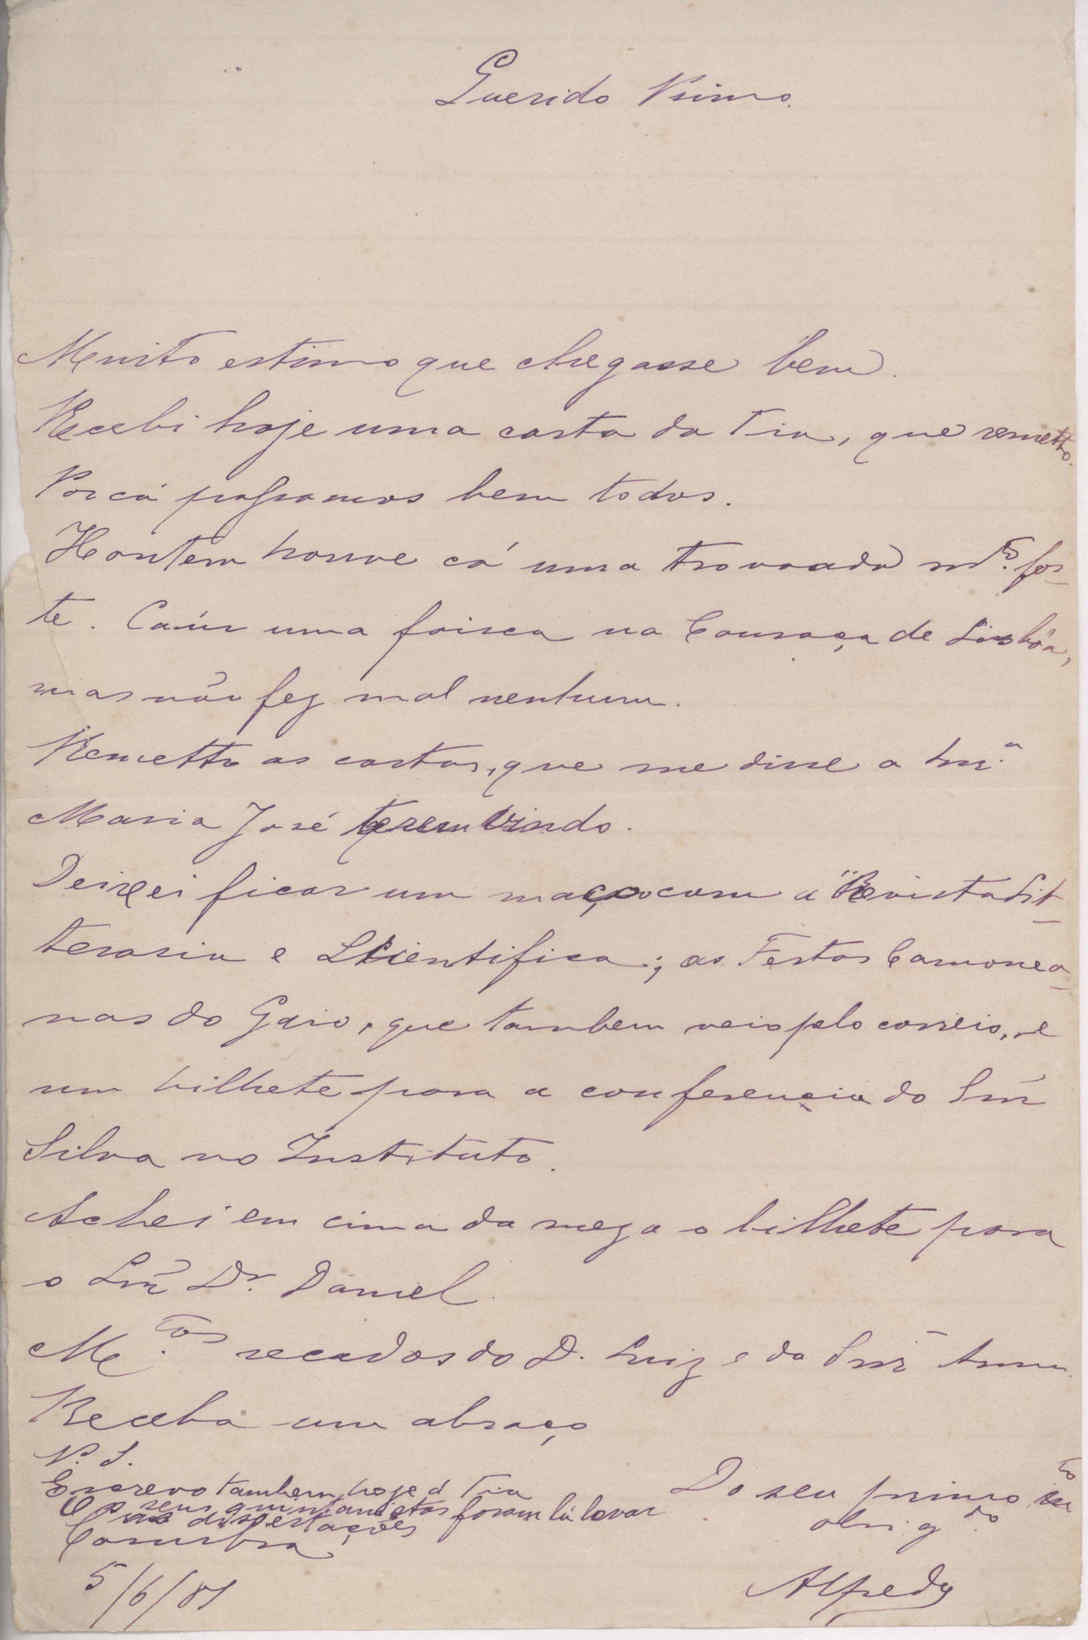 Querido Primo.
Muito estimo que chegasse bem.
Recebi hoje uma carta da Tia, que remetto.
Por cá passamos bem todos.
Hontem houve cá uma trovoada m.to for-
te. Caíu uma faisca na Couraça de Lisbôa,
mas não fez mal nenhum.
Remetto as cartas, que me disse a Snr.a
Maria José terem vindo.
Deixei ficar um maço com a "Revista Lit-
teraria e Scientifica; as Festas Camonea-
nas do Gaio, que tambem veio pelo correio, e
um bilhete para a conferencia do Snr
Silva no Instituto.
Achei em cima da meza o bilhete para
o Snr Dr. Daniel.
M.tos recados do D. Luiz e da Snr.ª Anna.
Receba um abraço
Do seu primo m.to
obrig.do
Alfredo
P. S.
Escrevo tambem hoje á Tia
Os seus quintanistas foram lá levar
as dissertações
Coimbra
5/6/81